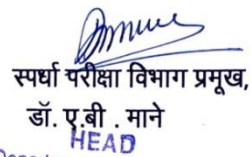 स्पर्धा परीक्षा विभाग प्रमुख,
डॉ. ए.बी . माने
HEAD